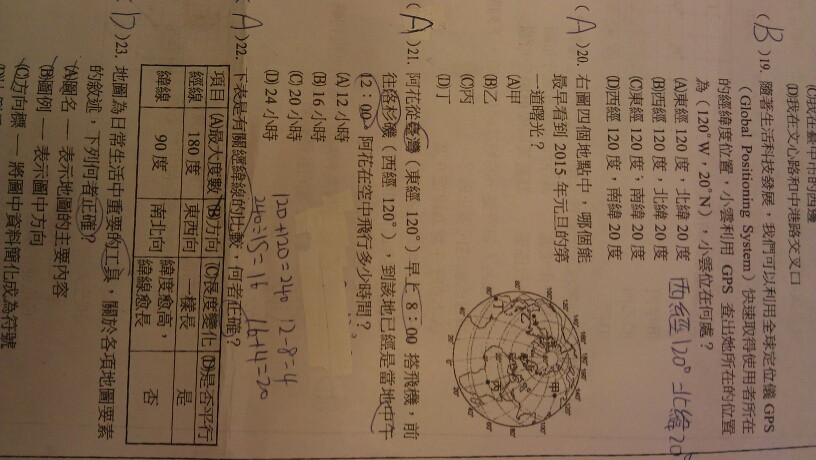 (C)我在臺中市的西邊
(D)我在文心路和中港路交叉口
(B)19. 隨著生活科技發展，我們可以利用全球定位儀 GPS
（Global Positioning System）快速取得使用者所在
的經緯度位置，小雲利用 GPS 查出她所在的位置
為（120°W，20°N），小雲位在何處？
(A)東經 120 度，北緯 20 度
(B)西經 120 度，北緯 20 度
(C)東經 120 度，南緯 20 度
(D)西經 120 度，南緯 20 度
西經120° 北緯20
(A)20. 右圖四個地點中，哪個能
最早看到 2015 年元旦的第
一道曙光？
(A)甲
(B)乙
(C)丙
(D)丁
(A)21. 阿花從臺灣（東經 120°）早上 8：00 搭飛機，前
往洛杉磯（西經 120°），到該地已經是當地中午
12：00，阿花在空中飛行多少時間？
(A) 12 小時
(B) 16 小時
(C) 20 小時
(D) 24 小時
120+120=240 12-8=4
240÷15=16 16+4=20
(A)22. 下表是有關經緯線的比較，何者正確？
項目 (A)最大度數 (B)方向 (C)長度變化 (D)是否平行
經線 180 度 東西向 一樣長 是
緯線 90 度 南北向 緯度愈高，緯線愈長 否
(D)23. 地圖為日常生活中重要的工具，關於各項地圖要素
的敘述，下列何者正確？
(A)圖名 — 表示地圖的主要內容
(B)圖例 — 表示圖中方向
(C)方向標 — 將圖中資料簡化成為符號